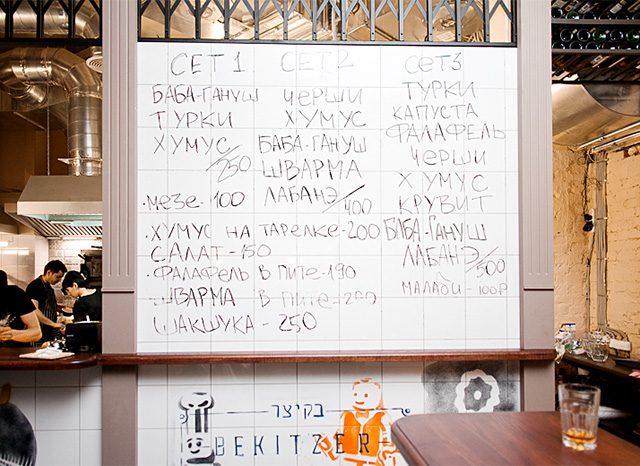 СЕТ 1
БАБА-ГАНУШ
ТУРКИ
ХУМУС
/250
·МЕЗЕ-100
СЕТ 2
ЧЕРШИ
ХУМУС
БАБА-ГАНУШ
ШВАРМА
ЛАБАНЭ/400
СЕТ 3
ТУРКИ
КАПУСТА
ФАЛАФЕЛЬ
ЧЕРШИ
ХУМУС
КРУВИТ
БАБА-ГАНУШ
ЛАБАНЭ/500
МАЛАБИ-100Р
·ХУМУС НА ТАРЕЛКЕ-200
САЛАТ-150
·ФАЛАФЕЛЬ В ПИТЕ-190
ШВАРМА В ПИТЕ-200
ШАКШУКА-250
בקיצר
BEKITZER